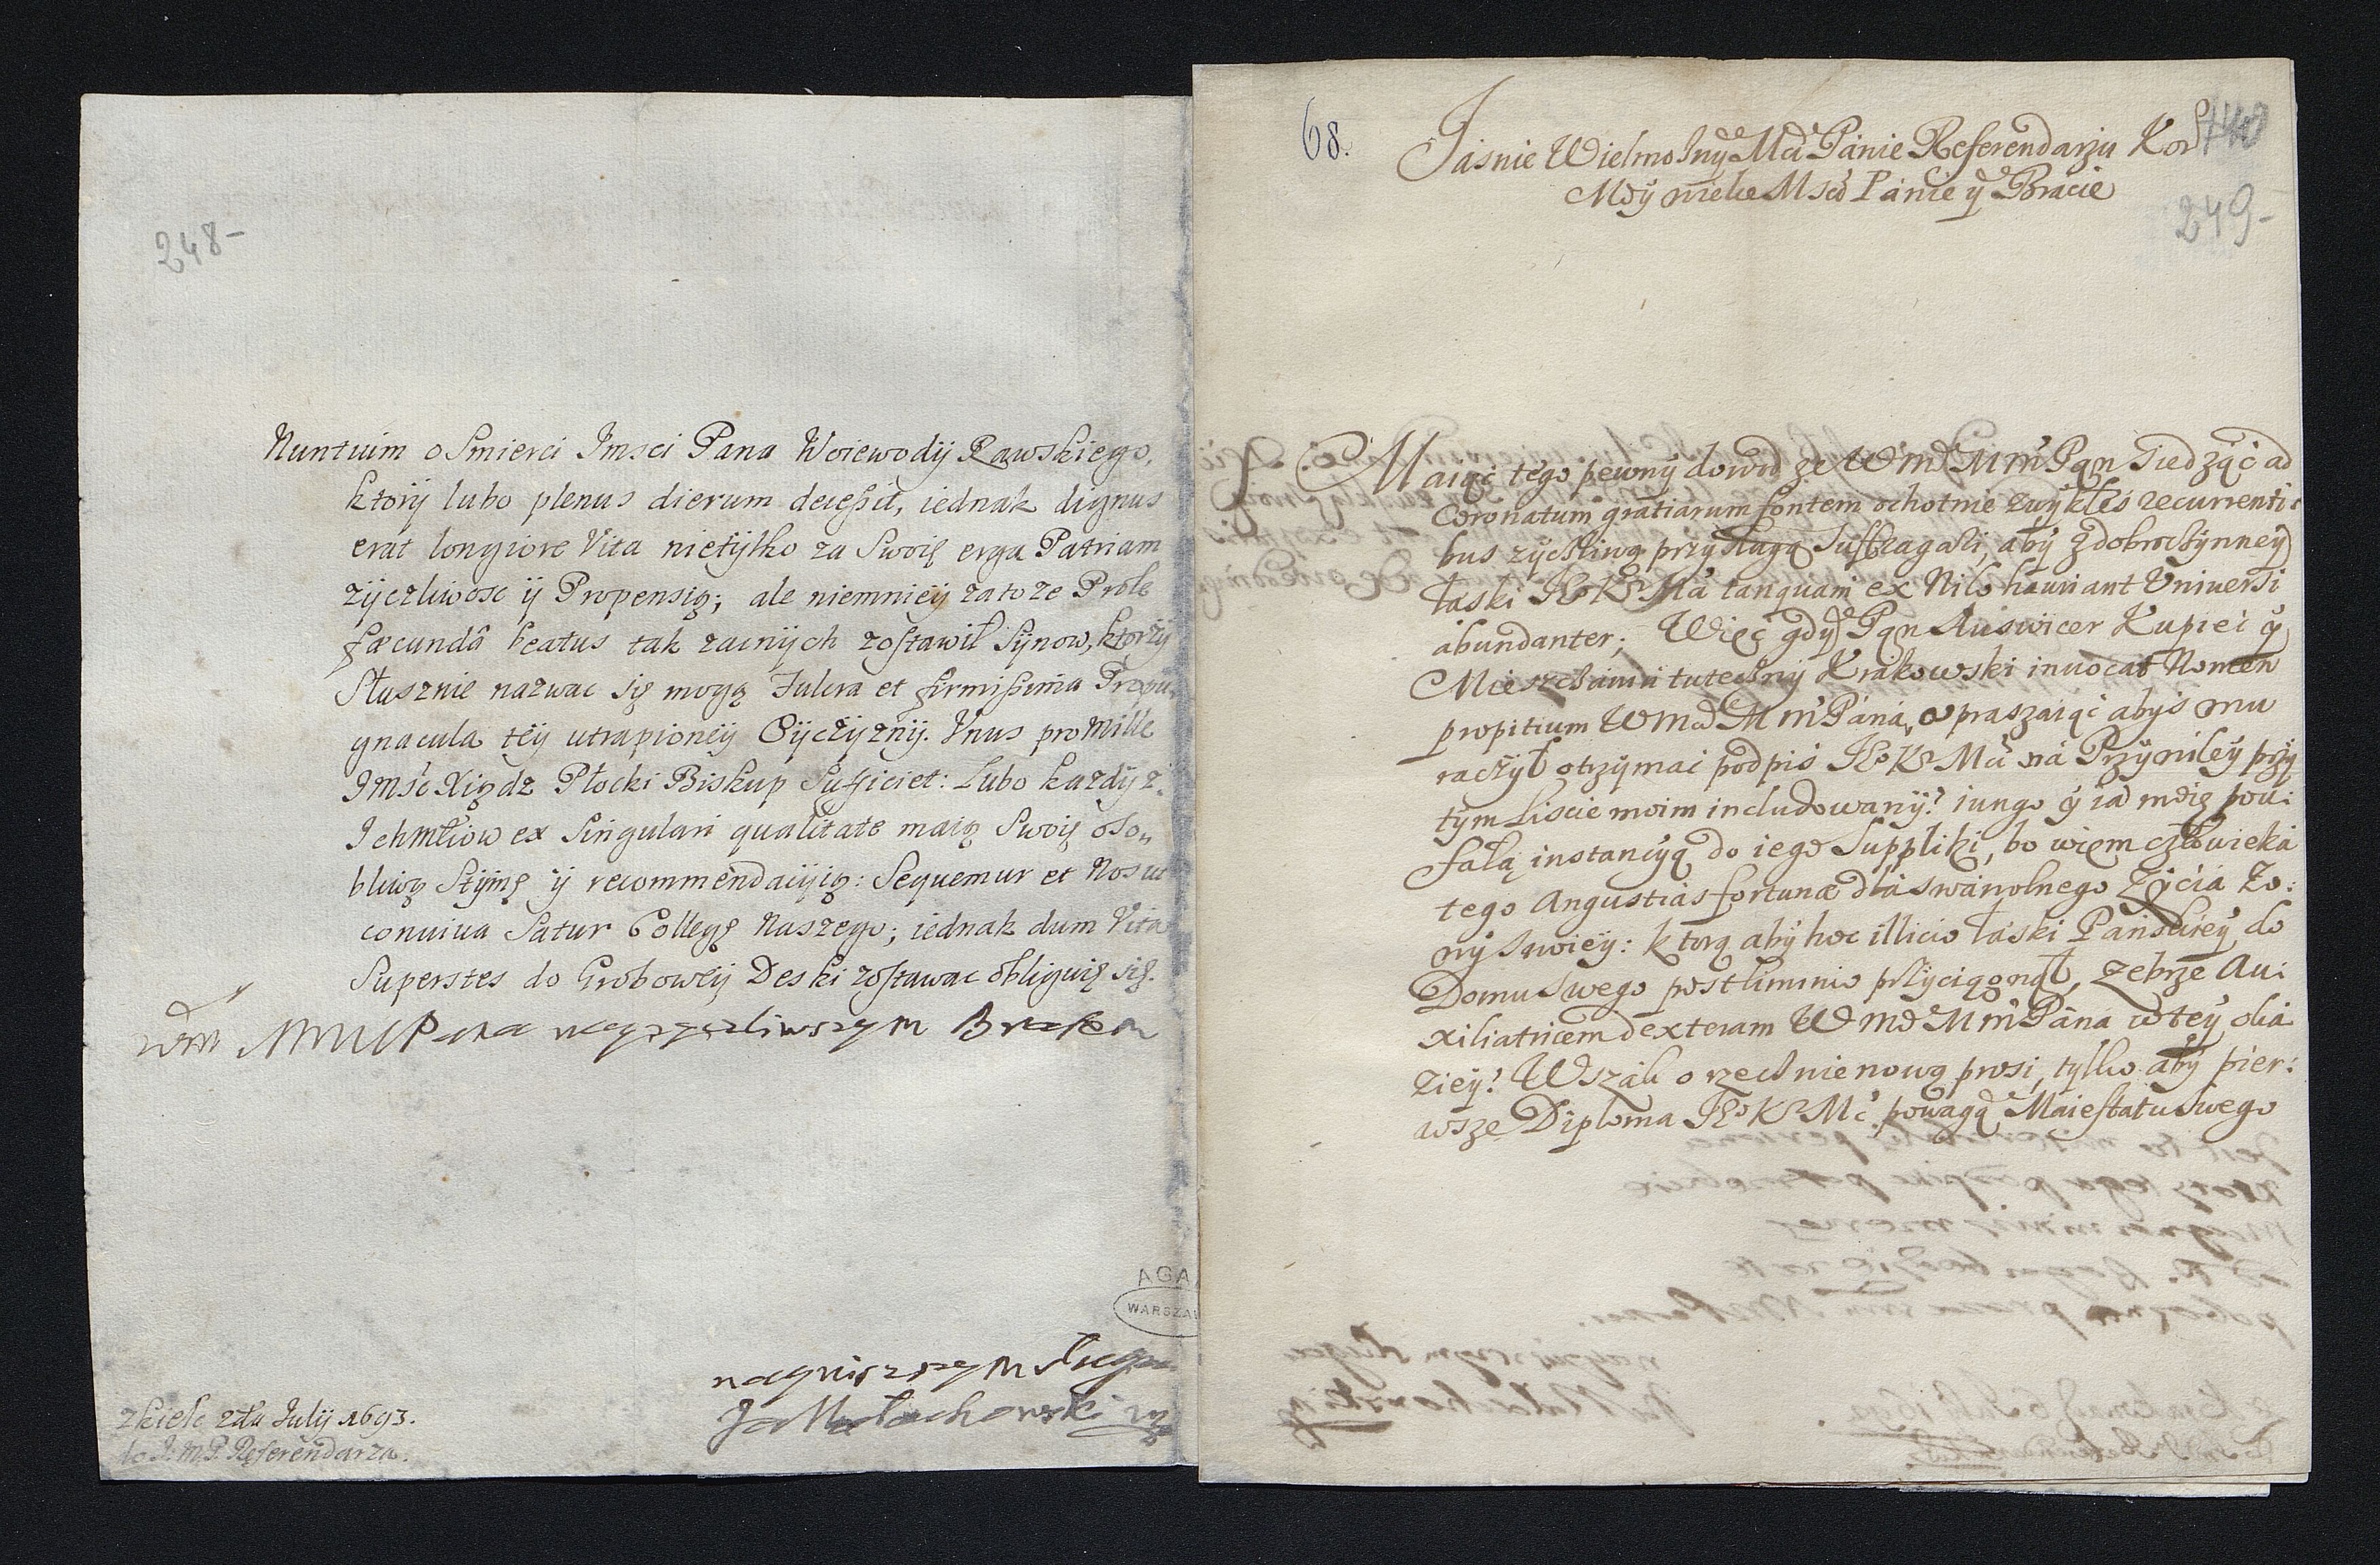 248-
Nuntium o Smierci Jmsci Pana Woiewody Rawskiego,
ktory lubo plenus dierum decessit, iednak dignus
erat longiore Vita nietylko za Swoię erga Patriam
zyczliwosc y Propensią; ale niemniey zato ze Prole
fæcundâ beatus tak zacnych zostawil Synow, ktorzy
Słusznie nazwac się mogą Fulcra et firmissima Propu„
gnacula tey utrapioney Oyczyzny. Vnus pro Mille
JMsc Xiądz Płocki Biskup Sufficiet: Lubo kazdy z
Ichmciow ex Singulari qualitate maią Swoię oso„
bliwą Stymę y recommendacyią: Sequemur et Nos ut
conuiua Satur Collegę Naszego; iednak dum Vita
Superstes do Grobowey Deski zostawac obliguię się.
Wm MMMPana nayzyczliwszym Bratem
AGA
WARSZAW
naynizszym sługą
Ja Małachowski
z Kielc 2da July 1693.
do J. M. P. Referendarza.
68.
249-
Jasnie Wielmozny Mci Panie Referendarzu Kor
Moy wielce Msci Panie y Bracie
Maiąc tego pewny dowod ze WMć MMPan siedząc ad
Coronatum gratiarum fontem ochotnie zwykłeś recurrenti:
bus zyczliwą przysługą Suffragari, aby z dobroczynney
Łaski JKMci tanquam ex Nilo hauriant Universi
abundanter; Więc gdy Pan Auswicer Kupiec y
Mieszczanin tuteczny Krakowski inuocat Nomen
propitium WMci MMPana, upraszaiąc abyś mu
raczył otrzymac podpis JKMci na Przywiley przy
tym Liscie moim includowany? iungo y ia moię pou:
fałą instancyą do iego Suppliki, bo wiem człowieka
tego Angustias fortunæ dla swawolnego Zycia Zo:
ny swoiey: ktorą aby hoc illicio łaski Panskiey do
Domu swego postliminio przyciągnął, zebrze Au:
xiliatricem dexteram WMci MMPana w tey oka
ziey? Wszak o rzecz nie nową prosi, tylko aby pier:
wsze Diploma JKMć powagą Maiestatu swego